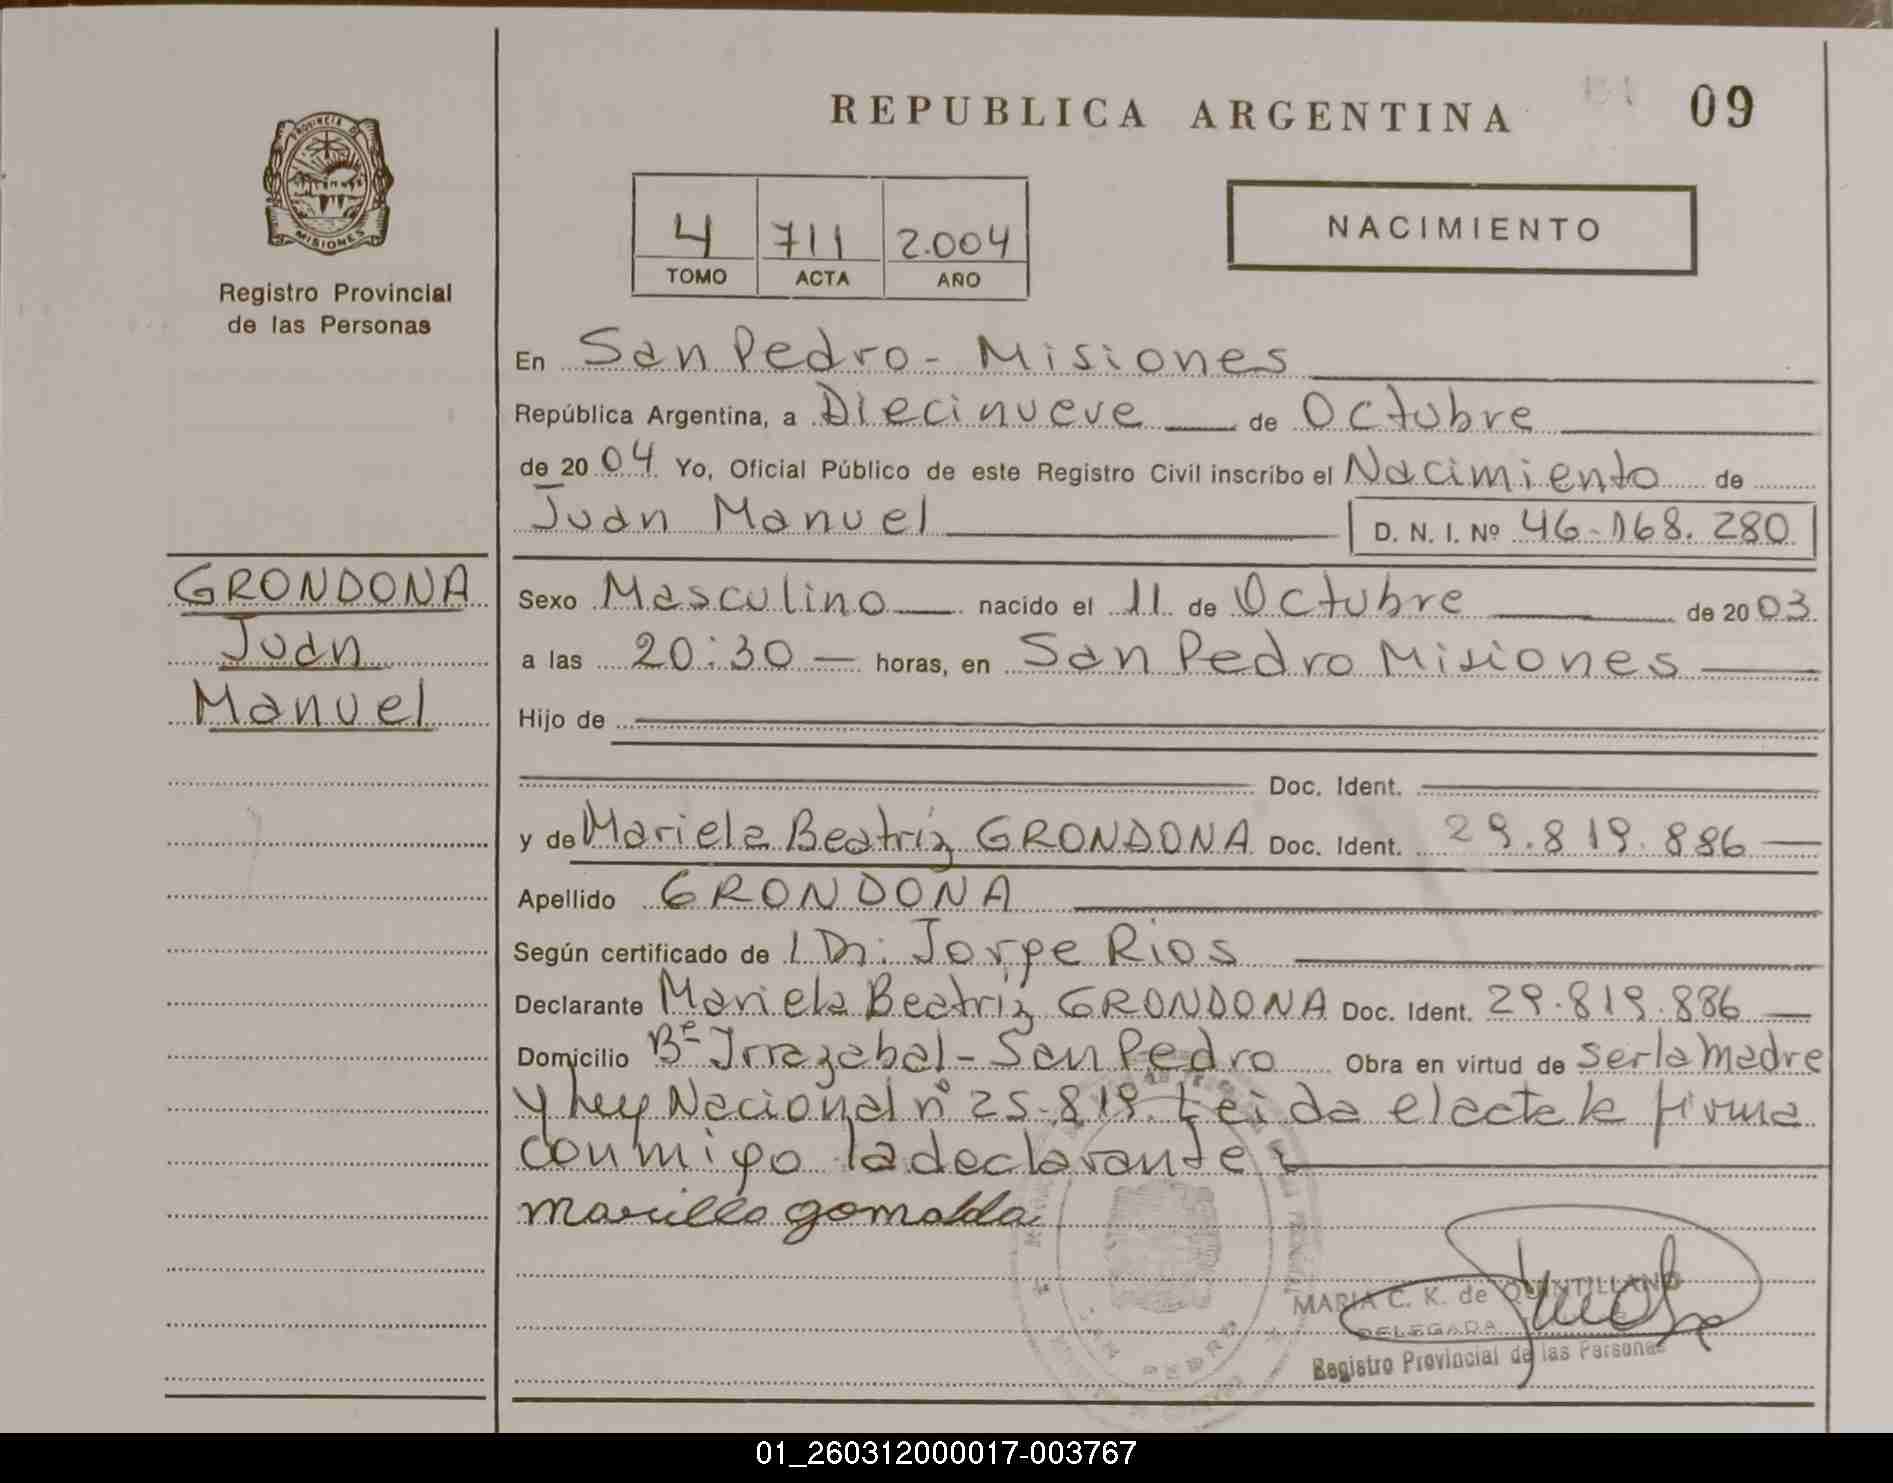 REPUBLICA ARGENTINA 09
PROVINCIA DE
MISIONES
Registro Provincial
de las Personas
4 711 2.004
TOMO ACTA AÑO
NACIMIENTO
En San Pedro - Misiones
República Argentina, a Diecinueve de Octubre
de 2004 Yo, Oficial Público de este Registro Civil inscribo el Nacimiento de
Juan Manuel D. N. I. Nº 46-168.280
GRONDONA
Juan
Manuel
Sexo Masculino nacido el 11 de Octubre de 2003
a las 20:30 horas, en San Pedro Misiones
Hijo de
Doc. Ident.
y de Mariela Beatriz GRONDONA Doc. Ident. 29.819.886
Apellido GRONDONA
Según certificado de Dr. Jorge Rios
Declarante Mariela Beatriz GRONDONA Doc. Ident. 29.819.886
Domicilio Bº Irrazabal - San Pedro Obra en virtud de ser la madre
y ley Nacional nº 25.819. Leida el acta la firma
conmigo la declarante
MARIA C. K. de QUINTILLANO
DELEGADA
Registro Provincial de las Personas
SAN PEDRO
01_260312000017-003767